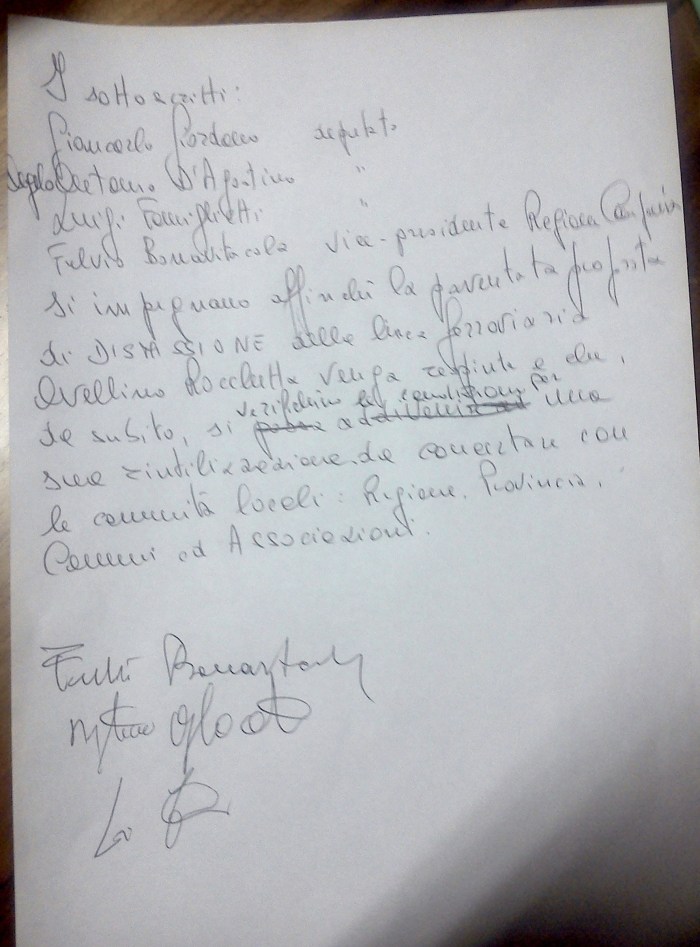 I sottoscritti:
Giancarlo Giordano deputato
Angelo Antonio D'Agostino "
Luigi Famiglietti "
Fulvio Bonavitacola vice-presidente Regione Campania
si impegnano affinché la paventata proposta
di DISMISSIONE della linea ferroviaria
Avellino Rocchetta venga respinta e che,
da subito, si verifichino le condizioni per una
sua riutilizzazione da concertare con
le comunità locali: Regione, Provincia,
Comuni ed Associazioni.
Fulvio Bonavitacola